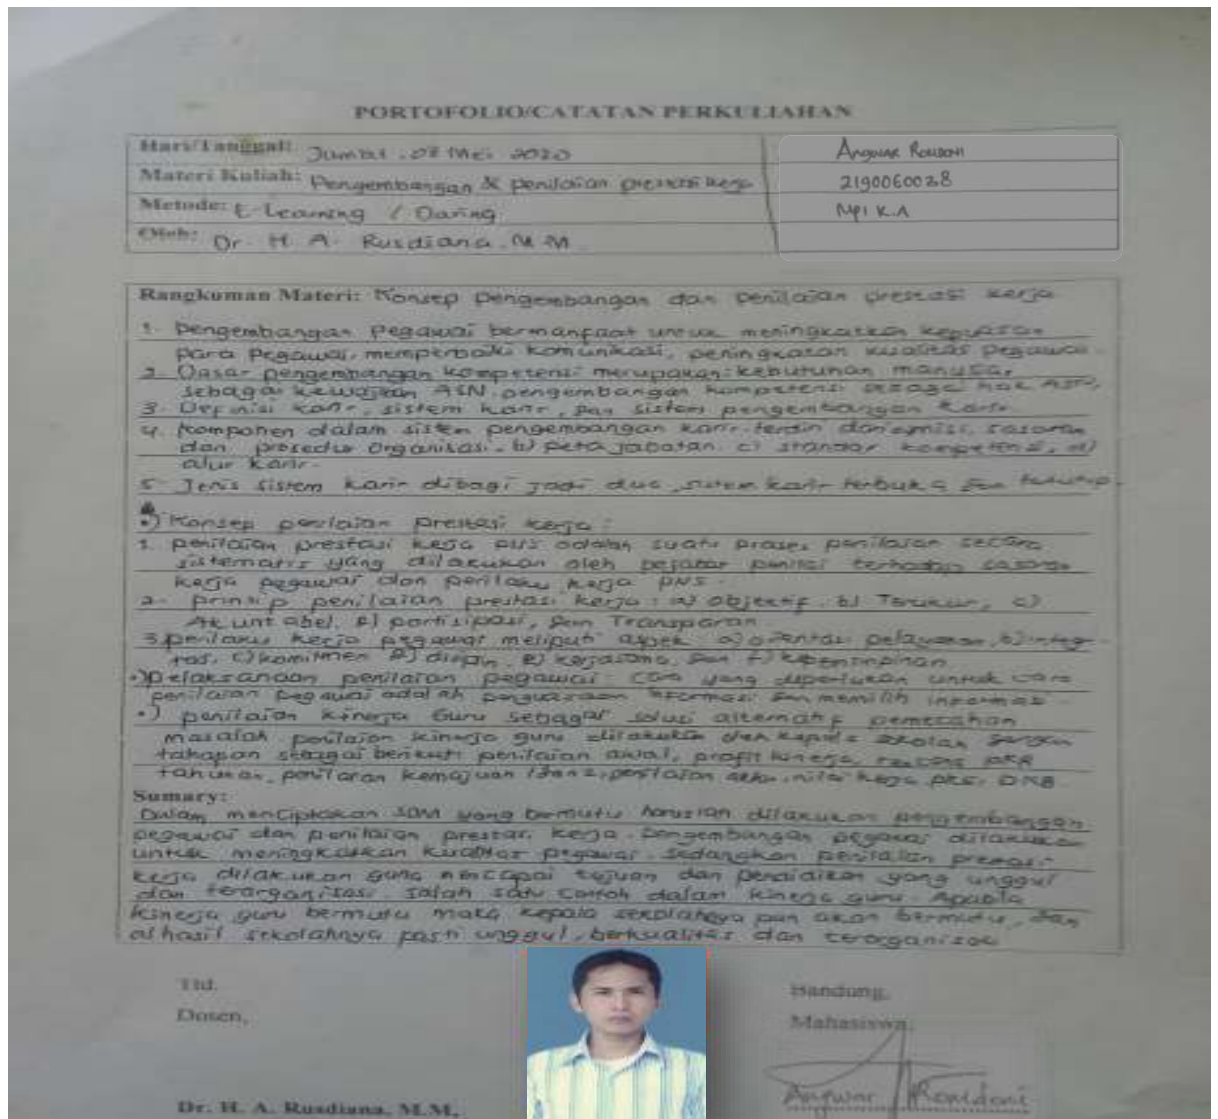 PORTOFOLIO/CATATAN PERKULIAHAN
Hari/Tanggal: Jumat, 08 Mei 2020
Angwar Romdoni
Materi Kuliah: Pengembangan & penilaian prestasi kerja
2190060038
Metode: E-Learning / Daring
MPI K.A
Oleh: Dr. H. A. Rusdiana, M.M.
Rangkuman Materi: Konsep pengembangan dan penilaian prestasi kerja
1. pengembangan Pegawai bermanfaat untuk meningkatkan kepuasan
para pegawai, memperbaiki komunikasi, peningkatan kualitas pegawai.
2. Dasar pengembangan kompetensi merupakan kebutuhan manusia,
sebagai kewajiban ASN, pengembangan kompetensi sebagai hak ASN,
3. Definisi karir, sistem karir, dan sistem pengembangan karir.
4. Komponen dalam sistem pengembangan karir terdiri dari misi, sasaran
dan prosedur organisasi. b) peta jabatan c) standar kompetensi, d)
alur karir.
5. Jenis sistem karir dibagi jadi dua, sistem karir terbuka dan tertutup
•) Konsep penilaian prestasi kerja:
1. penilaian prestasi kerja PNS adalah suatu proses penilaian secara
sistematis yang dilakukan oleh pejabat penilai terhadap sasaran
kerja pegawai dan perilaku kerja PNS.
2. prinsip penilaian prestasi kerja: a) objektif, b) Terukur, c)
Akuntabel, d) partisipasi, dan Transparan.
3. perilaku kerja pegawai meliputi aspek a) orientasi pelayanan, b) integ-
tas, c) komitmen d) disipin, e) kerjasama, dan f) kepemimpinan.
•) pelaksanaan penilaian pegawai: cara yang diperlukan untuk cara
penilaian pegawai adalah penguasaan informasi dan memilih informasi
•) penilaian kinerja Guru sebagai solusi alternatif pemecahan
masalah penilaian kinerja guru dilakukan oleh kepala sekolah dengan
tahapan sebagai berikut: penilaian awal, profil kinerja, rencana PKB
tahunan, penilaian kemajuan penilaian akhir, nilai kerja PKB
Sumary:
Dalam menciptakan SDM yang bermutu haruslah dilakukan pengembangan
pegawai dan penilaian prestasi kerja. pengembangan pegawai dilakukan
untuk meningkatkan kualitas pegawai. sedangkan penilaian prestasi
kerja dilakukan guna mencapai tujuan dan pendidikan yang unggul
dan terorganisasi. salah satu contoh dalam kinerja guru. Apabila
kinerja guru bermutu maka kepala sekolahnya pun akan bermutu, dan
alhasil sekolahnya pasti unggul, berkualitas dan terorganisasi
Ttd.
Bandung,
Dosen,
Mahasiswa,
Angwar Romdoni
Dr. H. A. Rusdiana, M.M,